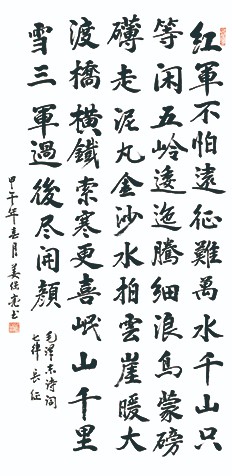 紅軍不怕遠征難萬水千山只
等闲五岭逶迤騰細浪烏蒙磅
礴走泥丸金沙水拍雲崖暖大
渡橋橫鐵索寒更喜岷山千里
雪三軍過後尽開顏
毛澤东诗词
七律長征
甲午年春月姜